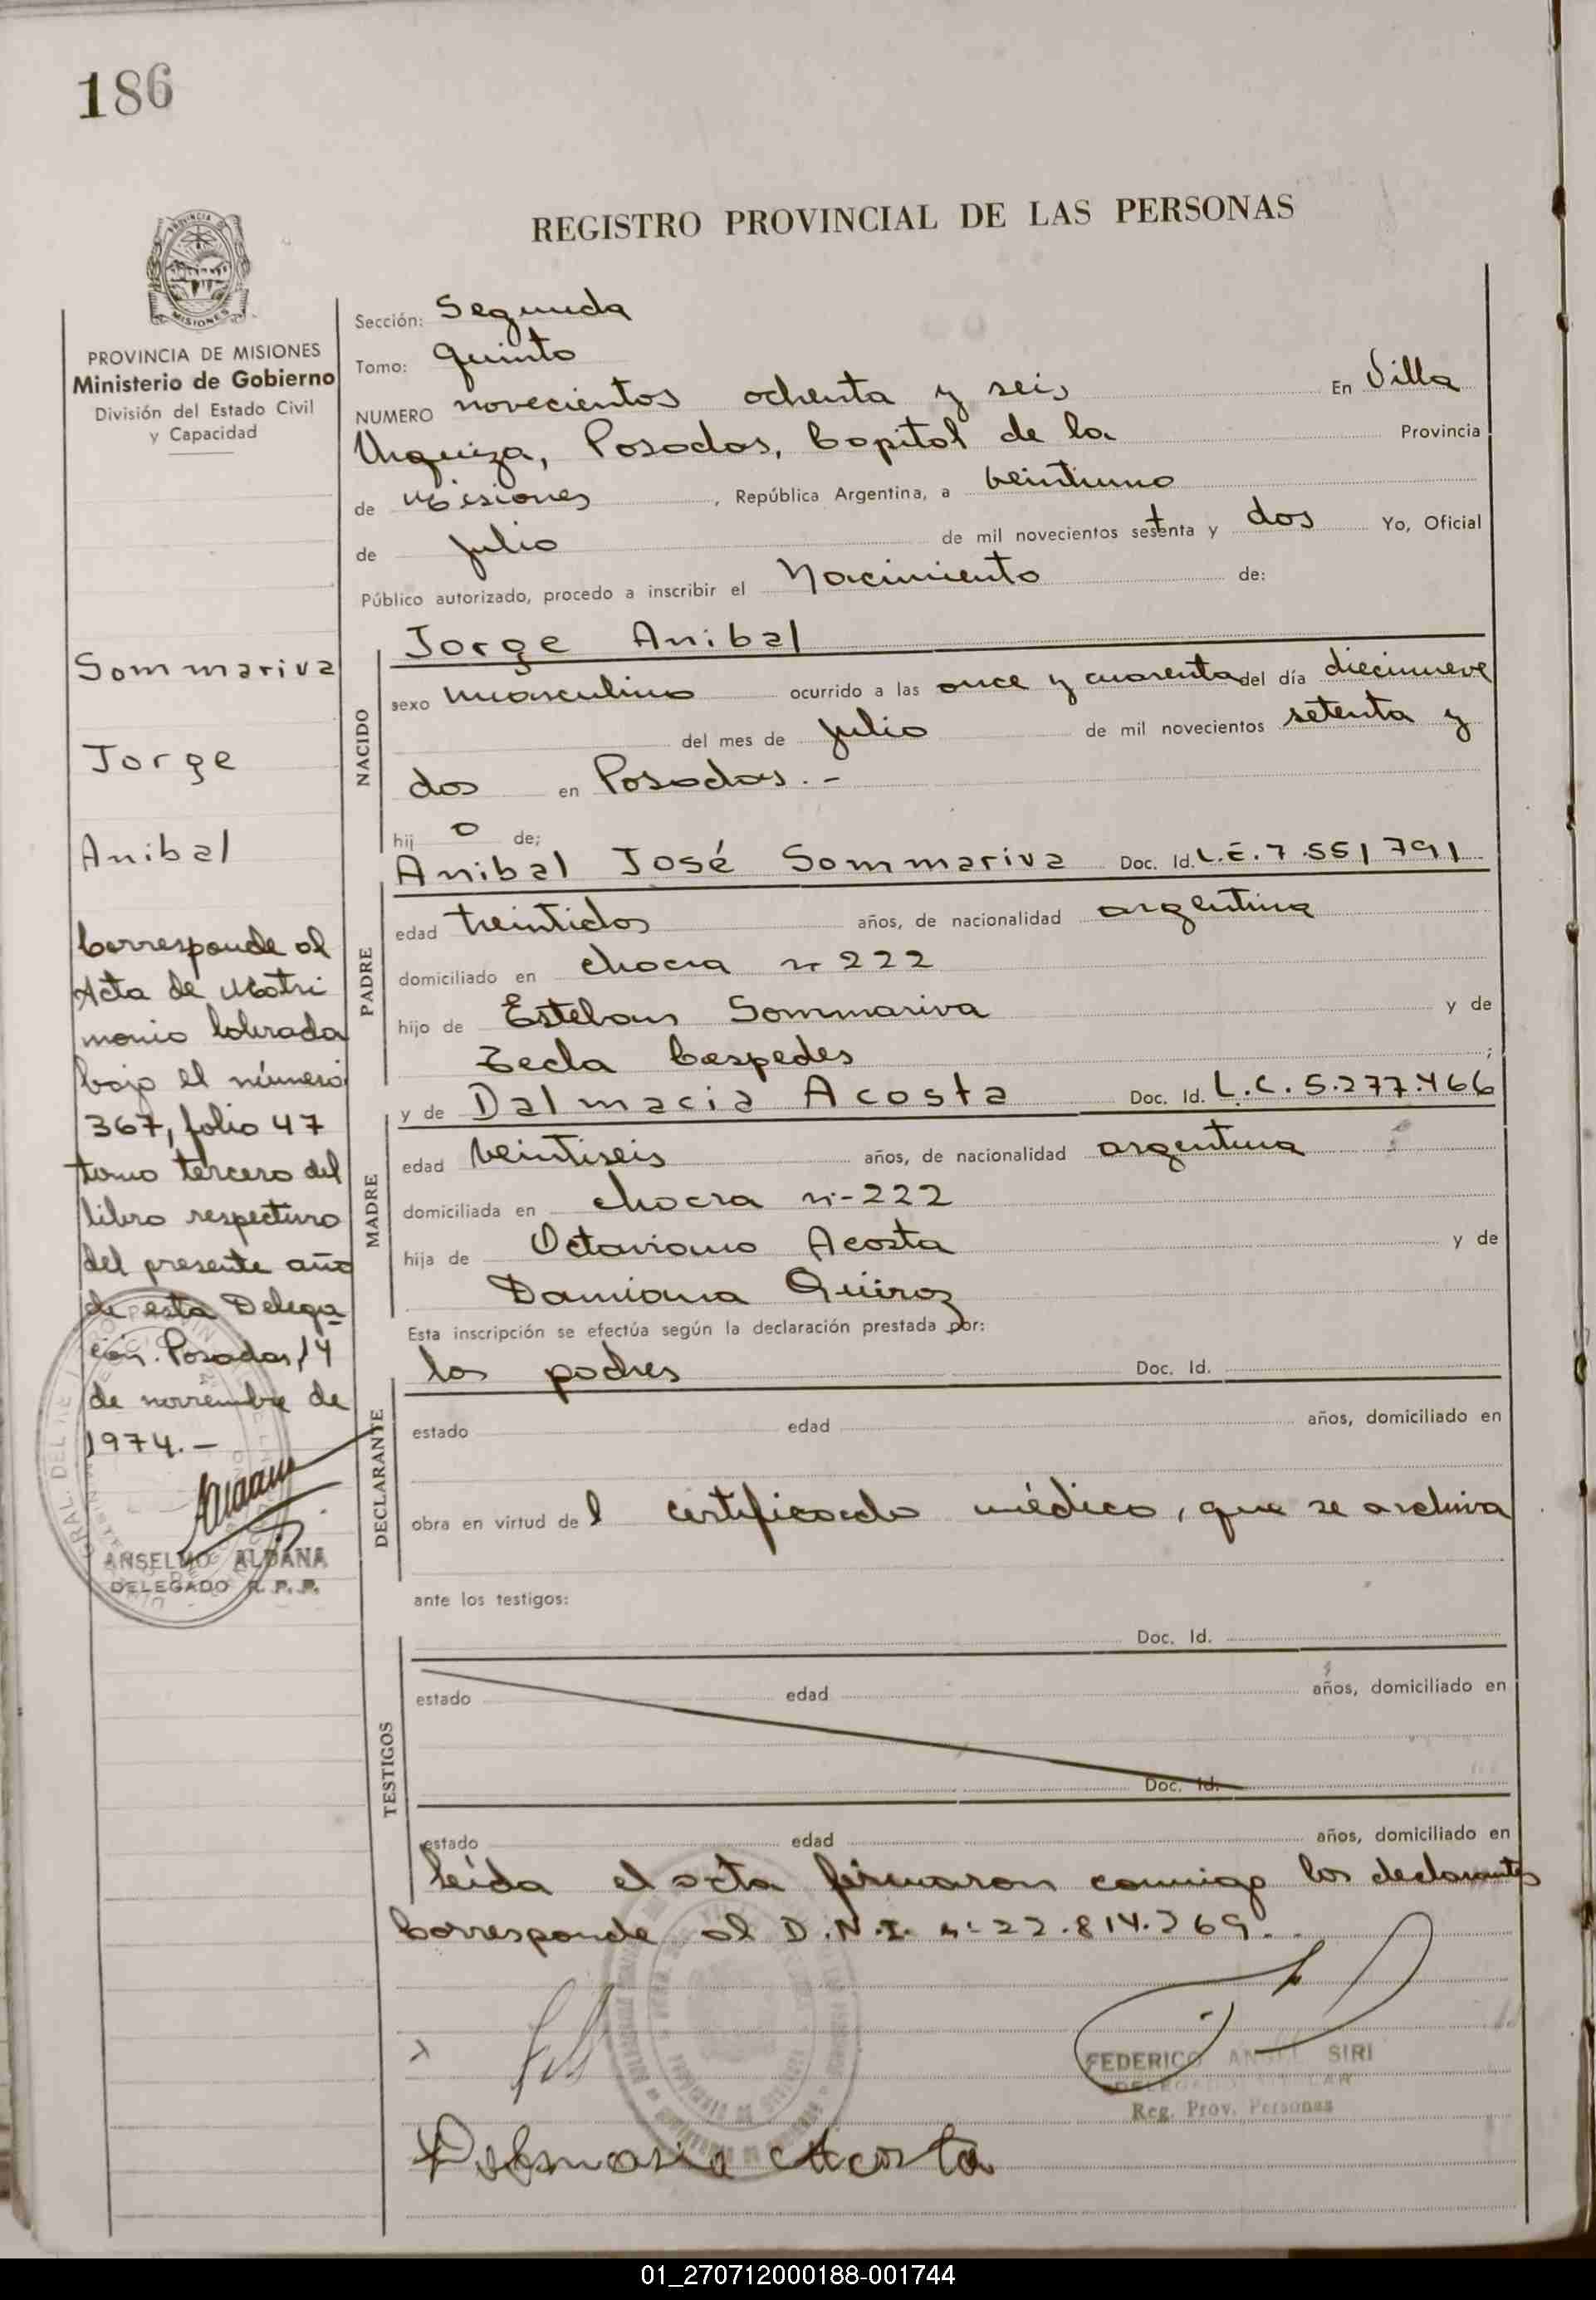 186
REGISTRO PROVINCIAL DE LAS PERSONAS
MISIONES
PROVINCIA DE MISIONES
Ministerio de Gobierno
División del Estado Civil
y Capacidad
Sommariva
Jorge
Anibal
Corresponde al
Acta de Matri
monio labrada
bajo el número
367, folio 47
tomo tercero del
libro respectivo
del presente año
de esta Delega-
ción. Posadas, 14
de noviembre de
1974.-
ANSELMO ALDANA
DELEGADO R. P. P.
Sección: Segunda
Tomo: Quinto
NUMERO novecientos ochenta y seis En Villa
Urquiza, Posadas, Capital de la Provincia
de Misiones, República Argentina, a veintiuno
de Julio de mil novecientos setenta y dos Yo, Oficial
Público autorizado, procedo a inscribir el Nacimiento de:
NACIDO
Jorge Anibal
sexo masculino ocurrido a las once y cuarenta del día diecinueve
del mes de Julio de mil novecientos setenta y
dos en Posadas.-
hij o de;
PADRE
Anibal José Sommariva Doc. Id. L.E. 7.551791
edad treintidos años, de nacionalidad argentina
domiciliado en chacra n 222
hijo de Esteban Sommariva y de
Tecla Cespedes ;
MADRE
y de Dalmacia Acosta Doc. Id. L.C. 5.277.466
edad veintiseis años, de nacionalidad argentina
domiciliada en chacra n-222
hija de Octaviano Acosta y de
Damiana Quiroz
Esta inscripción se efectúa según la declaración prestada por:
DECLARANTE
los padres Doc. Id.
estado edad años, domiciliado en
obra en virtud del certificado médico, que se archiva
ante los testigos:
TESTIGOS
Doc. Id.
estado edad años, domiciliado en
Doc. Id.
estado edad años, domiciliado en
Leída el acta firmaron conmigo los declarantes
Corresponde al D.N.I. n- 22.814.269.
FEDERICO ANGEL SIRI
DELEGADO TITULAR
Reg. Prov. Personas
Dalmacia Acosta
01_270712000188-001744